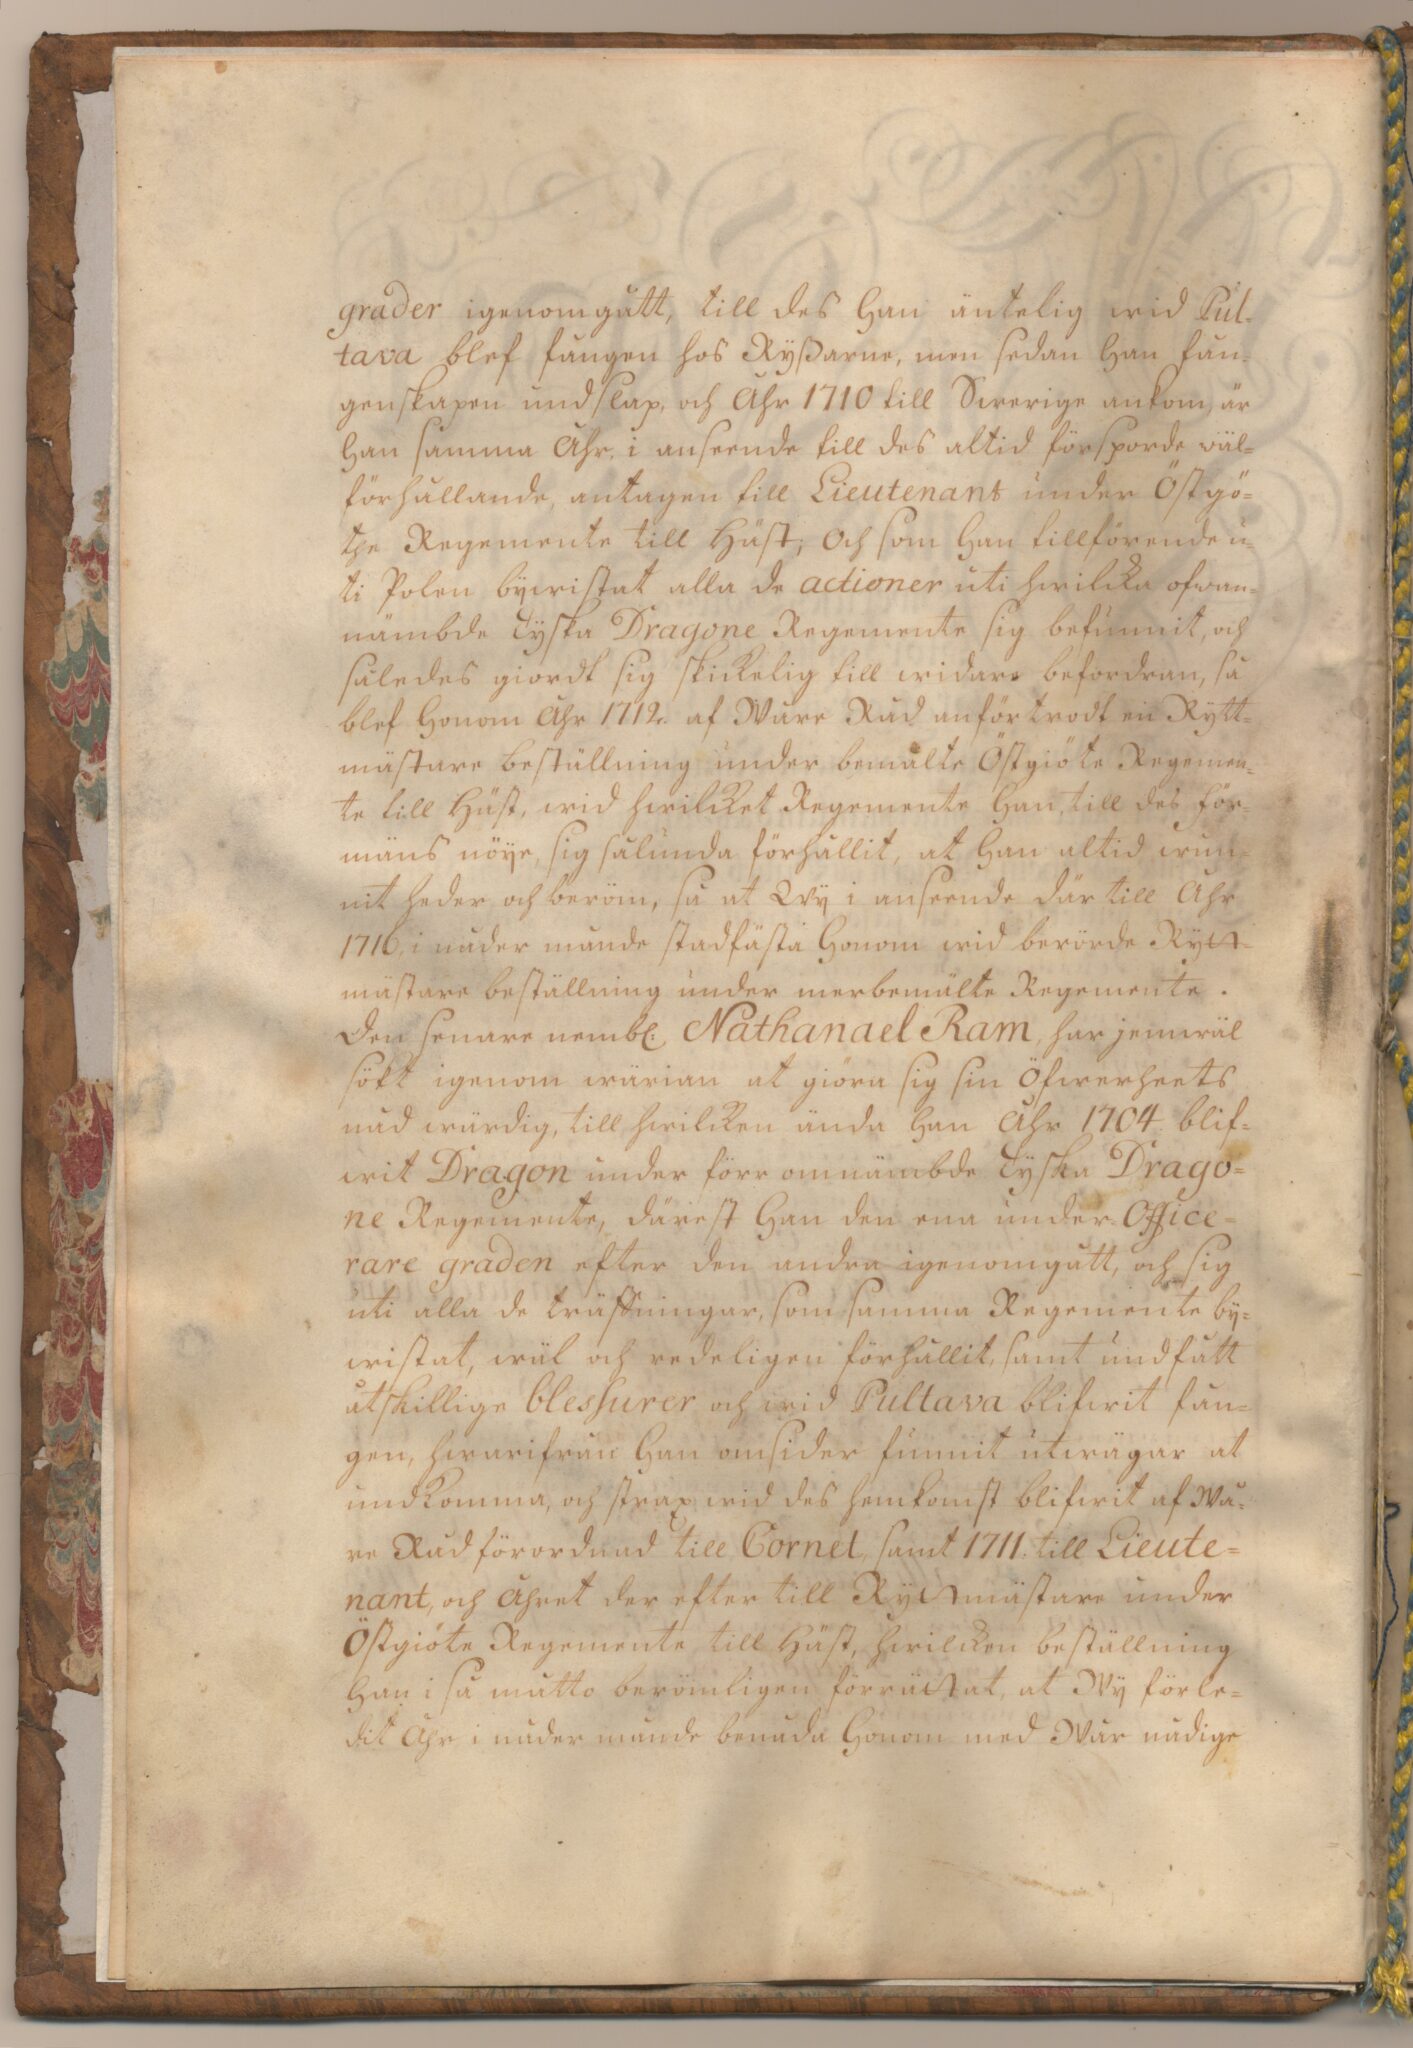 grader igenomgått, till des Han äntelig wid Pul-
tava blef fången hos Ryßarne, men sedan Han fån-
genskapen undslap, och Åhr 1710 till Swerige ankom, är
Han samma Åhr, i anseende till des altid försporde wäl-
förhållande, antagen till Lieutenant under Östgö-
the Regemente till Häst; Och som Han tillförende u-
ti Polen bywistat alla de actioner uti hwilcka ofwan-
nämbde Tyska Dragone Regemente sig befunnit, och
således giordt sig skickelig till widare befordran, så
blef Honom Åhr 1712. af Wåre Råd anförtrodt en Rytt-
mästare beställning under bemälte Östgiöte Regemen-
te till Häst, wid hwilcket Regemente Han, till des för-
mäns nöye, sig sålunda förhållit, at Han altid wun-
nit heder och beröm, så at Wy i anseende där till Åhr
1716, i nåder månde stadfästa Honom wid berörde Rytt-
mästare beställning under merbemälte Regemente.
Den senare nembl: Nathanael Ram, har jemwäl
sökt igenom wärian at giöra sig sin Öfwerheets
nåd wärdig, till hwilcken ända Han Åhr 1704 blif-
wit Dragon under förr omnämbde Tyska Drago-
ne Regemente, därest Han den ena under Office-
rare graden efter den andra igenomgått, och sig
uti alla de träffningar, som samma Regemente by-
wistat, wäl och redeligen förhållit, samt undfått
åtskillige blessurer och wid Pultava blifwit fån-
gen, hwarifrån Han omsider funnit utwägar at
undkomma, och strax wid des hemkomst blifwit af Wå-
re Råd förordnad till Cornet, samt 1711. till Lieute-
nant, och Åhret der efter till Ryttmästare under
Östgiöte Regemente till Häst, hwilcken beställning
Han i så måtto berömligen förrättat, at Wy förle-
dit Åhr i nåder månde benåda Honom med Wår nådige